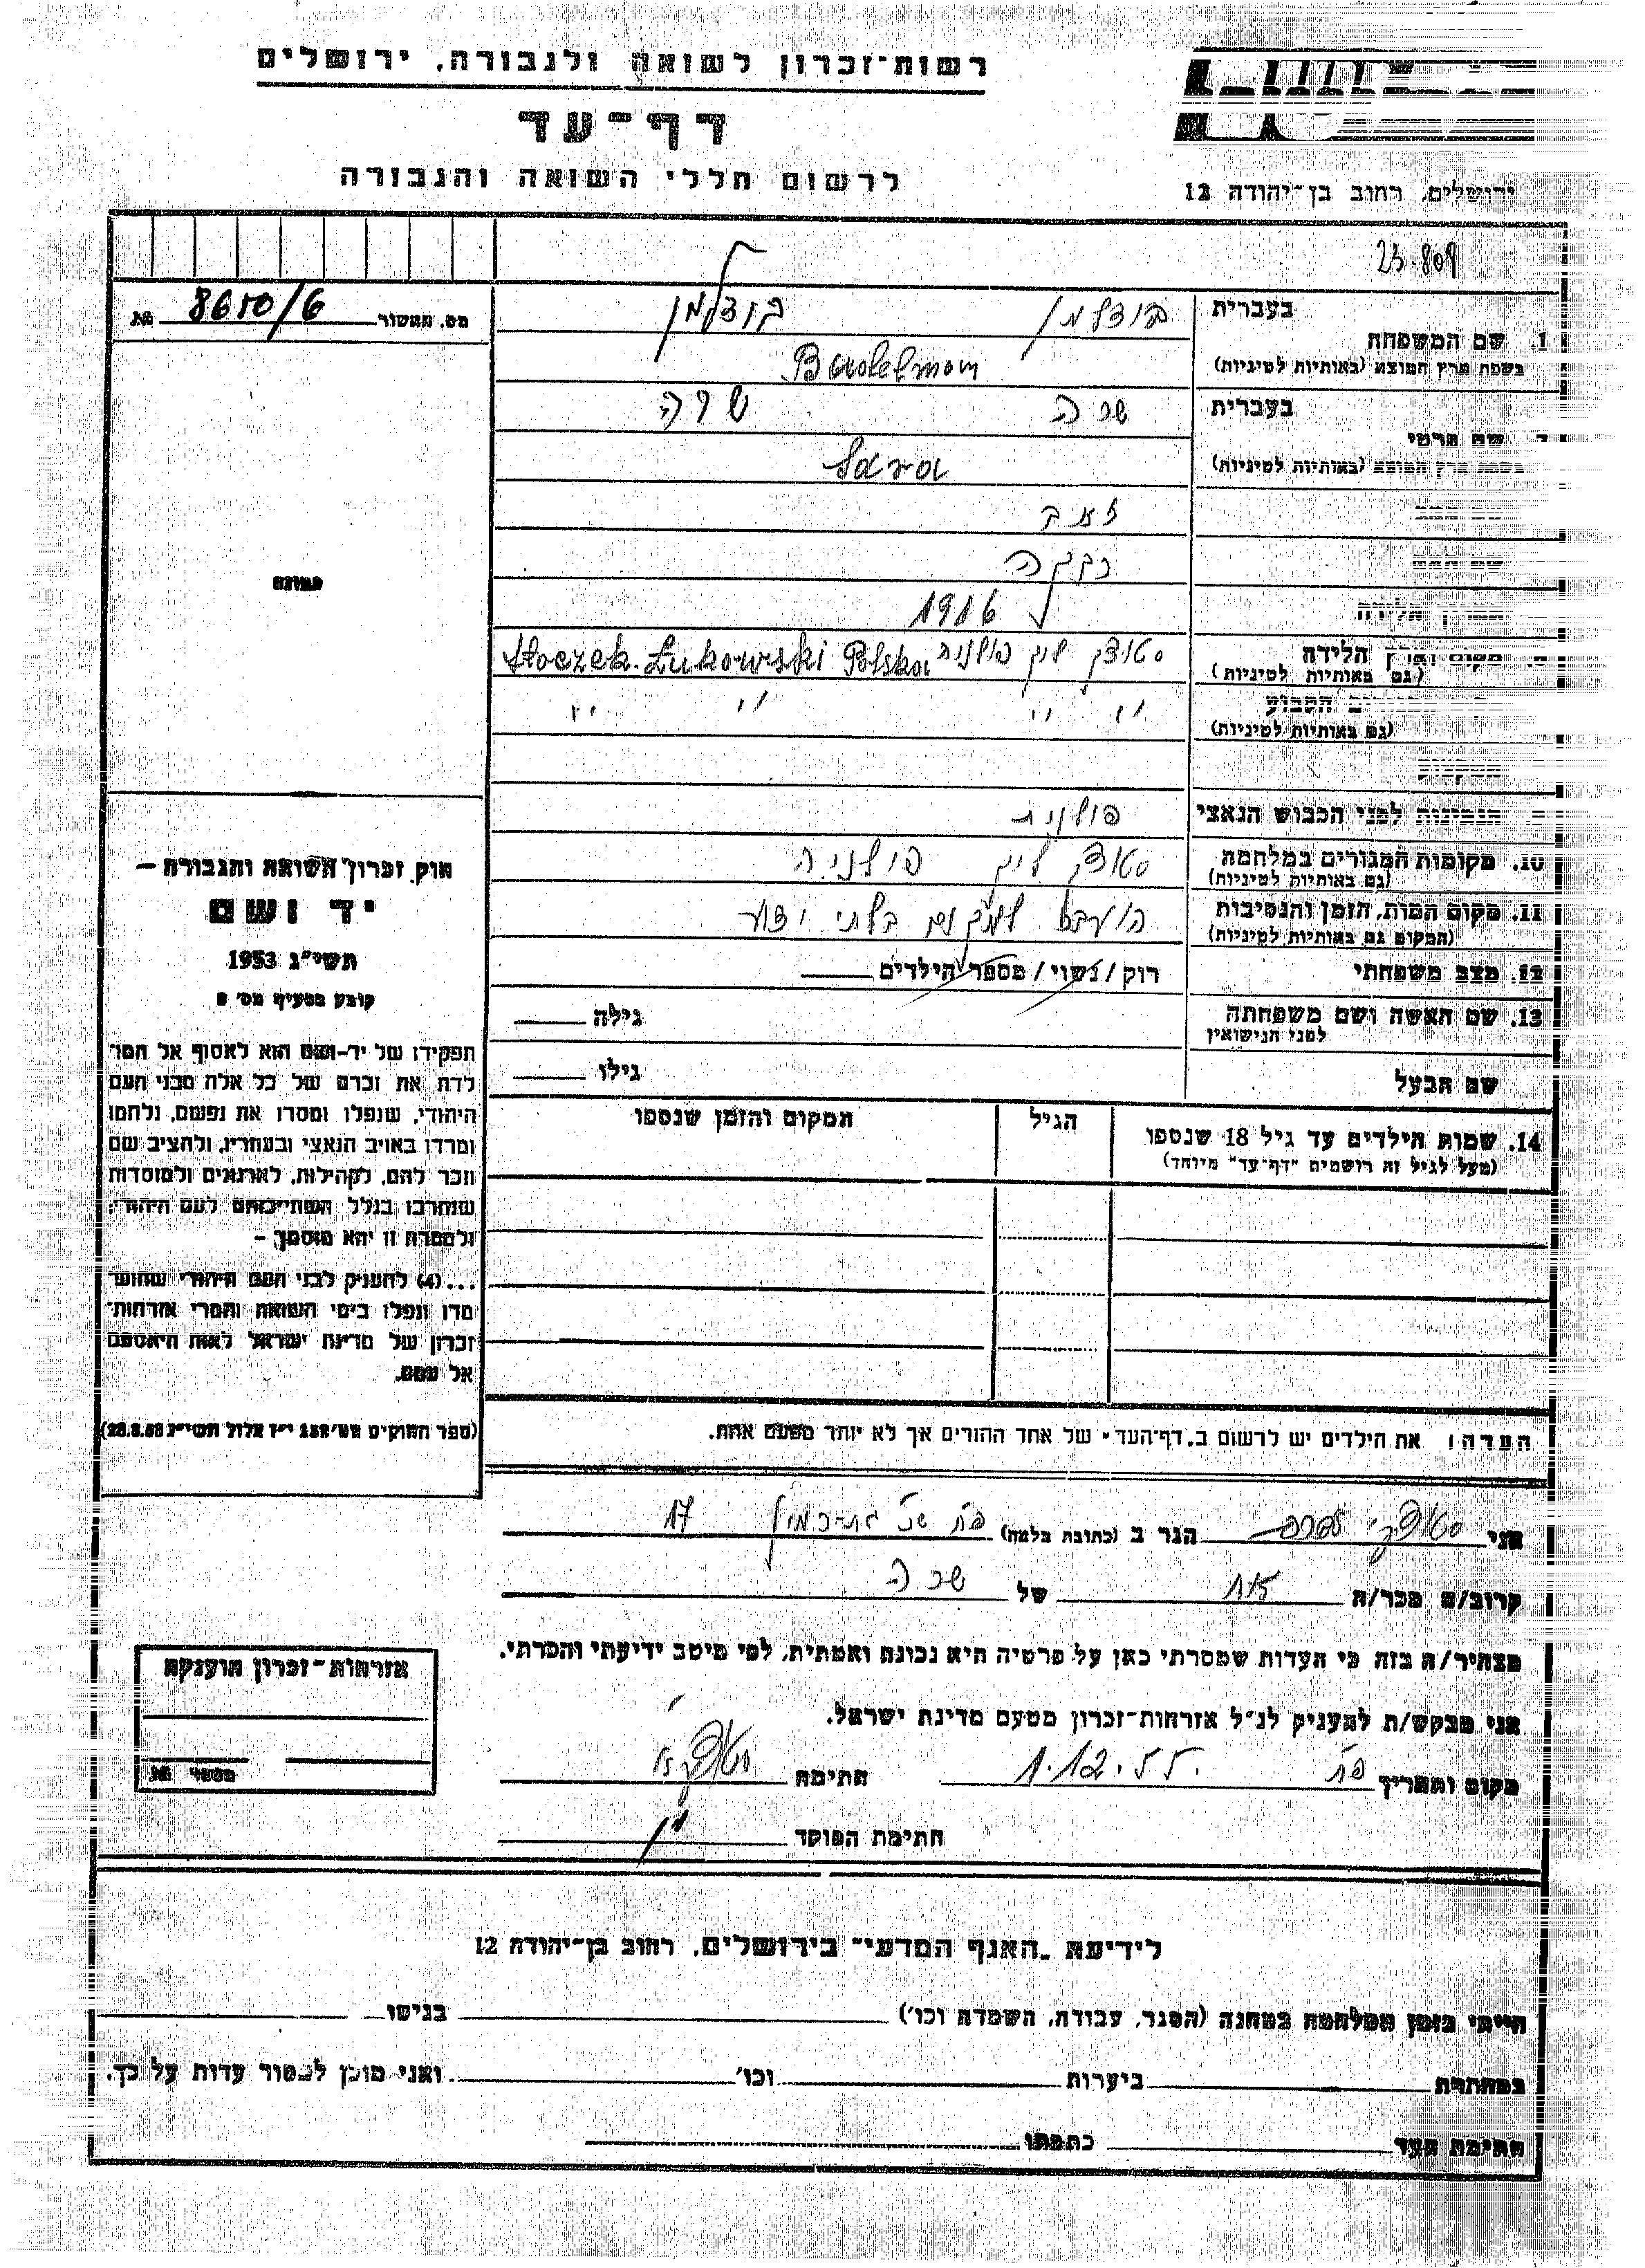 רשות־זכרון לשואה ולגבורה, ירושלים
דף־עד
לרשום חללי השואה והגבורה
ירושלים, רחוב בן־יהודה 12
23.808
מס. תאשור № 8650/6
1. שם המשפחה
בעברית
בודלמן בודלמן
בשפת ארץ המוצא (באותיות לטיניות)
Budelman
שם פרטי
בעברית
שרה שרה
בשפת ארץ המוצא (באותיות לטיניות)
Sara
זאב
שם האם
רבקה
תאריך הלידה
1916
מקום וארץ הלידה
(גם באותיות לטיניות)
סטוצק לוק פולניה Stoczek. Łukowski Polska
הקבוע
(גם באותיות לטיניות)
" " " "
המקצוע
הנתינות לפני הכבוש הנאצי
פולנית
10. מקומות המגורים במלחמה
(גם באותיות לטיניות)
סטוצק לוק פולניה
11. מקום המות, הזמן והנסיבות
(המקום גם באותיות לטיניות)
הועברה למקום בלתי ידוע
12. מצב משפחתי
רוק / נשוי / מספר הילדים
13. שם האשה ושם משפחתה
לפני הנישואין
גילה
שם הבעל
גילו
14. שמות הילדים עד גיל 18 שנספו
(מעל לגיל זה רושמים "דף־עד" מיוחד)
הגיל
המקום והזמן שנספו
הערה: את הילדים יש לרשום ב„דף־העד" של אחד ההורים אך לא יותר מפעם אחת.
תמונה
חוק זכרון השואה והגבורה —
יד ושם
תשי"ג 1953
קובע בסעיף מס' 2
תפקידו של יד-ושם הוא לאסוף אל המו־
לדת את זכרם של כל אלה מבני העם
היהודי, שנפלו ומסרו את נפשם, נלחמו
ומרדו באויב הנאצי ובעוזריו, ולהציב שם
וזכר להם, לקהילות, לארגונים ולמוסדות
שנחרבו בגלל השתייכותם לעם היהודי;
ולמטרה זו יהא מוסמך —
...(4) להעניק לבני העם היהודי שהוש־
מדו ונפלו בימי השואה והמרי אזרחות־
זכרון של מדינת ישראל לאות היאספם
אל עמם.
(ספר החוקים מס' 132 י"ז אלול תשי"ג 28.8.53)
אני הגר ב (כתובת מלאה) פת 17
קרוב/ה מכר/ה אח של שרה
מצהיר/ה בזה כי העדות שמסרתי כאן על פרטיה היא נכונה ואמתית, לפי מיטב ידיעתי והכרתי.
אני מבקש/ת להעניק לנ"ל אזרחות־זכרון מטעם מדינת ישראל.
מקום ותאריך פת 1.12.55. חתימה
חתימת הפוקד
אזרחות־זכרון הוענקה
מספר №
לידיעת „האגף המדעי" בירושלים, רחוב בן־יהודה 12
הייתי בזמן המלחמה במחנה (הסגר, עבודה, השמדה וכו') בגיטו
במחתרת ביערות וכו' ואני מוכן למסור עדות על כך.
חתימת העד כתבתו